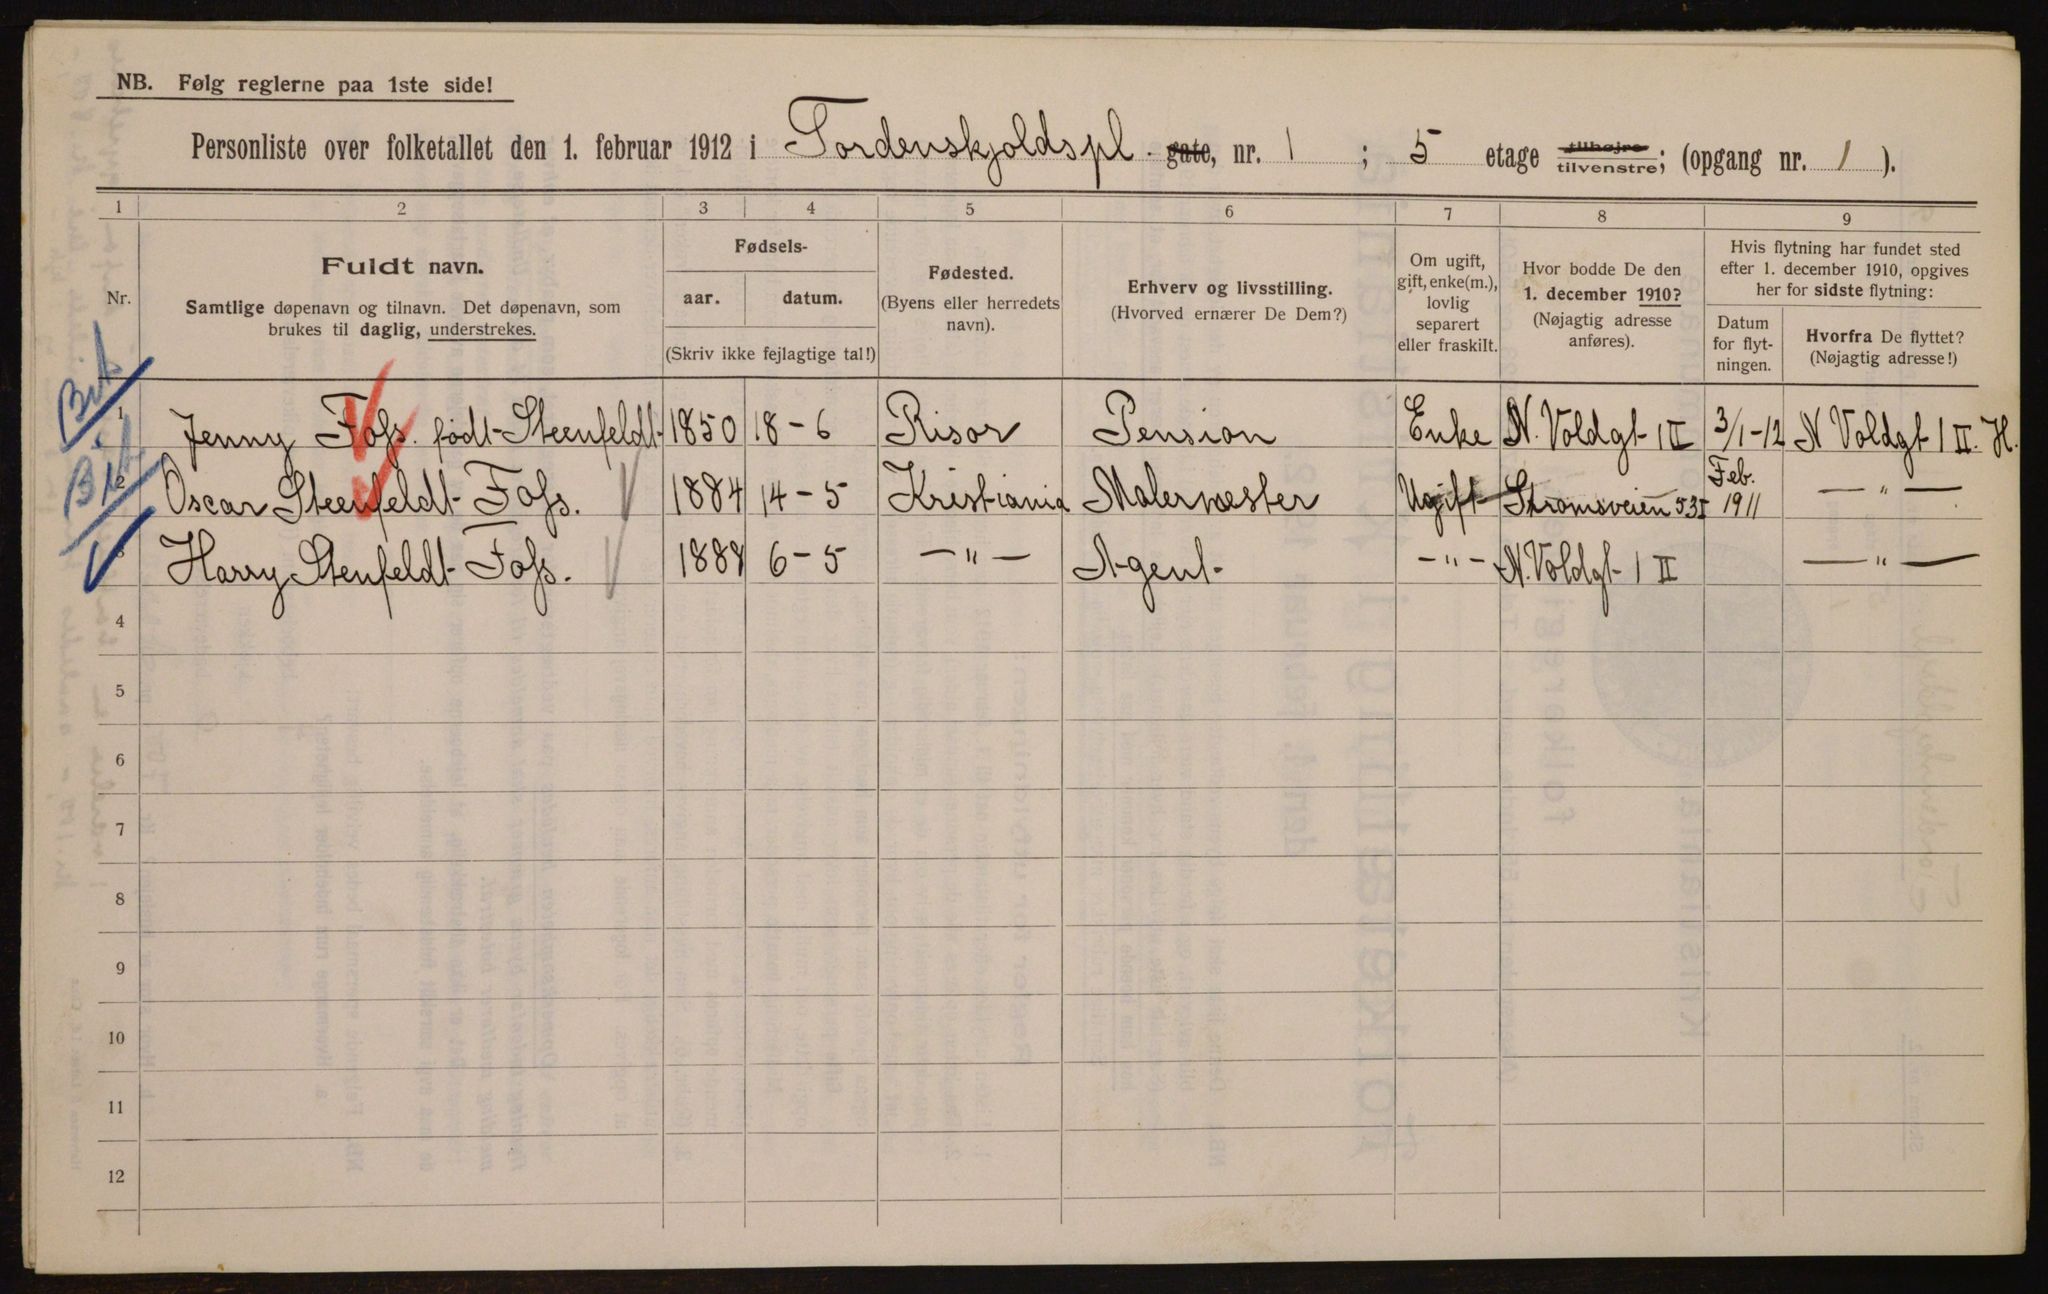 NB. Følg reglerne paa 1ste side!
Personliste over folketallet den 1. februar 1912 i Tordenskjoldspl. gate, nr. 1 ; 5 etage tilhøjre/tilvenstre; (opgang nr. 1 ).
1 2 3 4 5 6 7 8 9
Nr.
Fuldt navn.
Samtlige døpenavn og tilnavn. Det døpenavn, som
brukes til daglig, understrekes.
Fødsels-
aar. datum.
(Skriv ikke fejlagtige tal!)
Fødested.
(Byens eller herredets
navn).
Erhverv og livsstilling.
(Hvorved ernærer De Dem?)
Om ugift,
gift, enke(m.),
lovlig
separert
eller fraskilt.
Hvor bodde De den
1. december 1910?
(Nøjagtig adresse
anføres).
Hvis flytning har fundet sted
efter 1. december 1910, opgives
her for sidste flytning:
Datum
for flyt-
ningen.
Hvorfra De flyttet?
(Nøjagtig adresse!)
1 Jenny Foss. født Steenfeldt 1850 18-6 Risør Pension Enke N. Voldgt 1 II 3/1-12 N Voldgt 1 II. H.
2 Oscar Steenfeldt Foss. 1884 14-5 Kristiania Malermester Ugift Strømsveien 53 I Feb. 1911 — " —
3 Harry Stenfeldt Foss. 1888 6-5 — " — Agent — " — N. Voldgt 1 II — " —
4
5
6
7
8
9
10
11
12